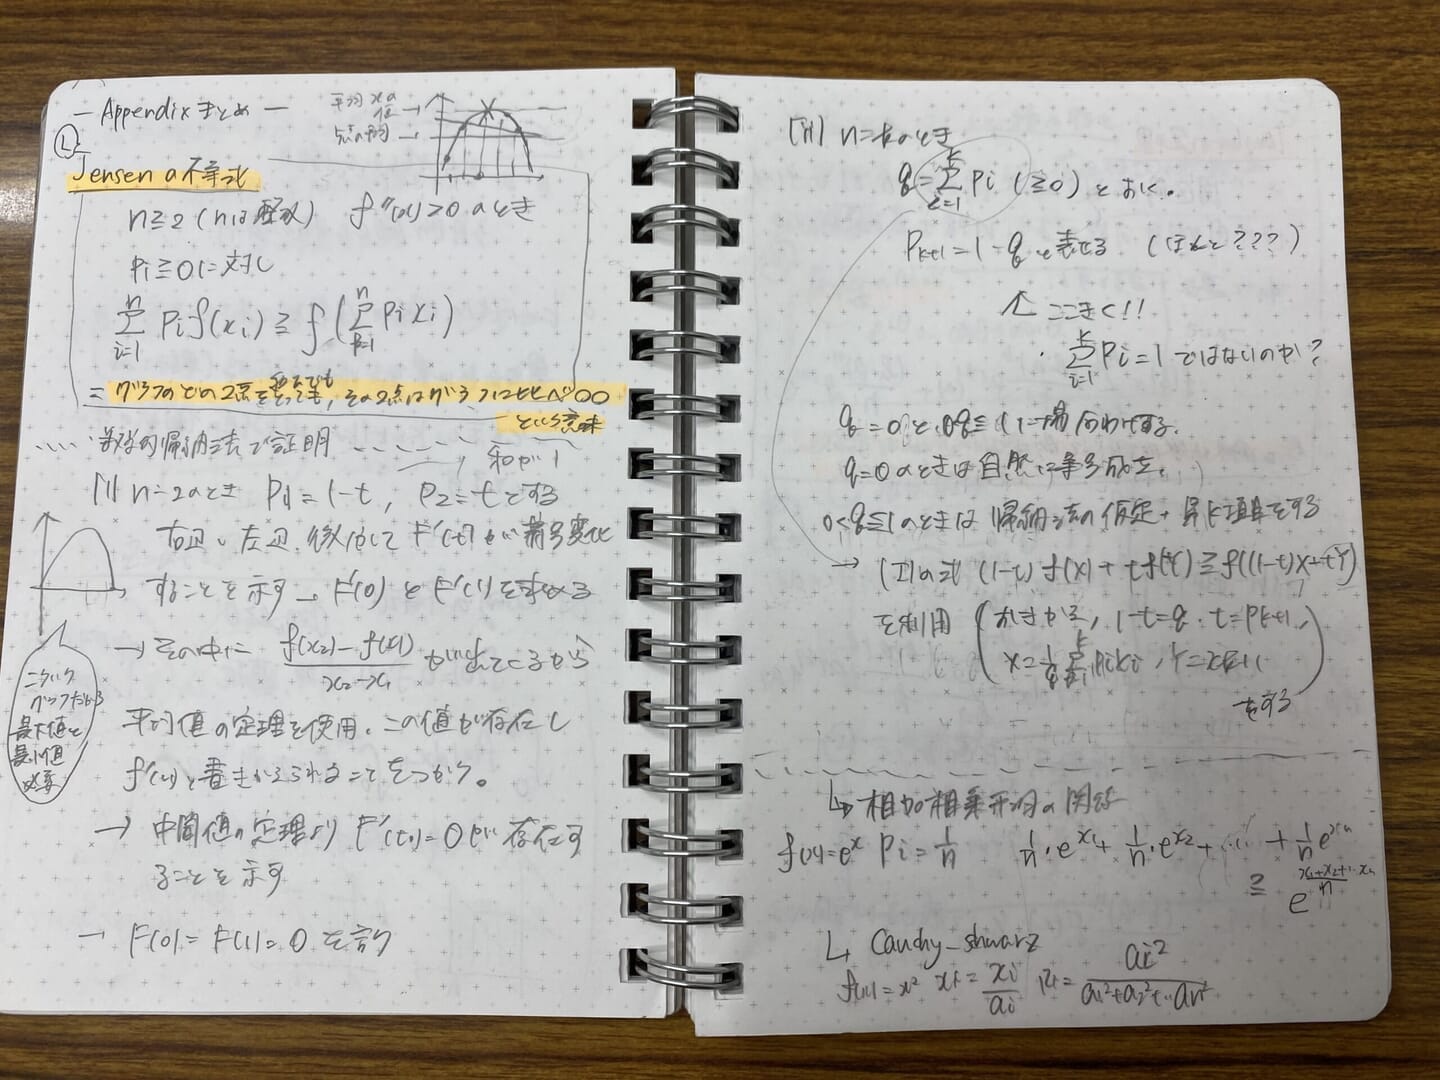 — Appendix まとめ —
平均xの値→
点の平均→
Jensenの不等式
n≧2 (nは整数) f''(x)>0のとき
Pi≧0に対し
n∑i=1 Pi f(xi) ≧ f(n∑i=1 Pi xi)
= グラフのどの2点をとっても, その2点はグラフに比べ〇〇
という意味
数学的帰納法で証明
和が1
[I] n=2のとき P1=1-t, P2=tとする
右辺、左辺 F'(t)が符号変化
することを示す → F'(0)とF'(1)を求める
→ その中に f(x2)-f(x1)/x2-x1 が出てくるから
平均値の定理を使用. この値が存在し
f'(u)と書きかえられることをつかう。
→ 中間値の定理より F'(t0)=0が存在す
ることを示す
→ F(0)=F(1)=0を言う
こういう
グラフだから
最大値と
最小値
必要
[II] n=kのとき
q=k∑i=1 Pi (≧0)とおく。
Pk+1=1-qと表せる (ほんと???)
↑ ここきく!!
・k∑i=1 Pi=1ではないのか?
q=0と0<q≦1に場合わけする.
q=0のときは自然に等号成立.
0<q≦1のときは 帰納法の仮定+ をする
→ (I)の式 (1-t)f(X)+tf(Y)≧f((1-t)X+tY)
を利用 (おきかえ, 1-t=q, t=Pk+1,
X=1/q k∑i=1 Pixi, Y=xk+1)
をする
↳ 相加相乗平均の関係
f(x)=e^x Pi=1/n 1/n・e^x1+1/n・e^x2+…+1/n e^xn
≧ e^(x1+x2+…xn/n)
↳ Cauchy_shwarz
f(x)=x² xi=xi/ai Pi=ai²/a1²+a2²+…an²